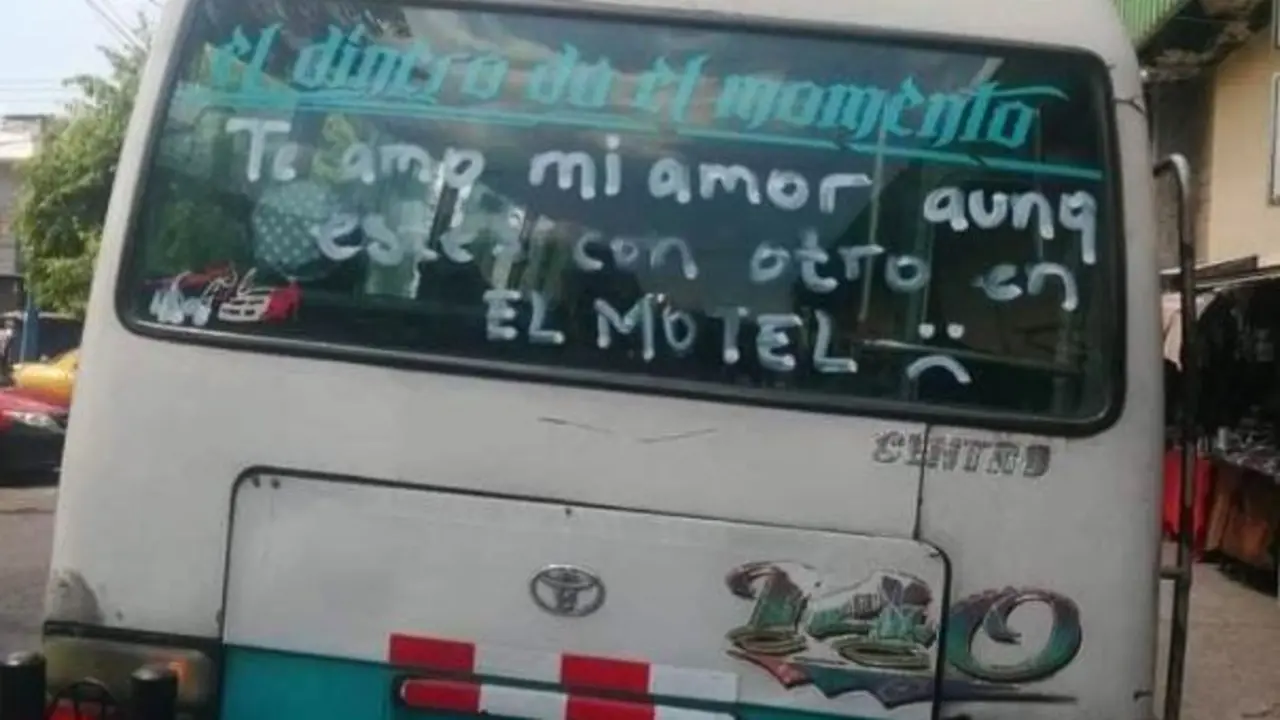 el dinero da el momento
Te amo mi amor aunq
estes con otro en
EL MOTEL :(
CENTRO